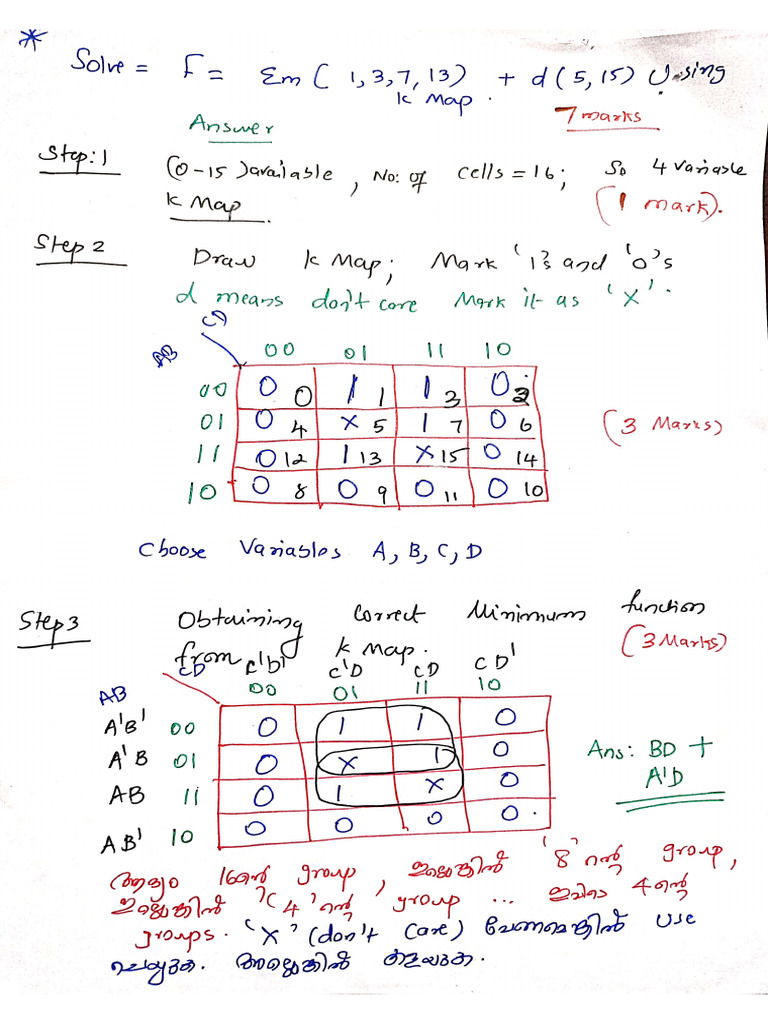 * Solve = F = Σm( 1,3,7,13) + d(5,15) Using
K Map.
7 marks
Answer
Step:1 (0-15) available, No: of cells = 16; So 4 variable
K Map. (1 mark).
Step 2 Draw K Map; Mark '1's and '0's
d means don't care Mark it as 'X'.
CD
AB 00 01 11 10
00 0 0 1 1 1 3 0 2
01 0 4 X 5 1 7 0 6
(3 Marks)
11 0 12 1 13 X 15 0 14
10 0 8 0 9 0 11 0 10
Choose Variables A, B, C, D
Step 3 Obtaining correct Minimum function
from K Map. (3 Marks)
CD C'D' C'D CD CD'
AB 00 01 11 10
A'B' 00 0 1 1 0
A'B 01 0 X 1 0
Ans: BD +
A'D
AB 11 0 1 X 0
AB' 10 0 0 0 0.
ആദ്യം 16ന്റെ group, ഇല്ലെങ്കിൽ '8' ന്റെ group,
ഇല്ലെങ്കിൽ '4' ന്റെ group ... ഇവിടെ 4ന്റെ
groups. 'X' (don't care) വേണമെങ്കിൽ use
ചെയ്യുക. അല്ലെങ്കിൽ കളയുക.